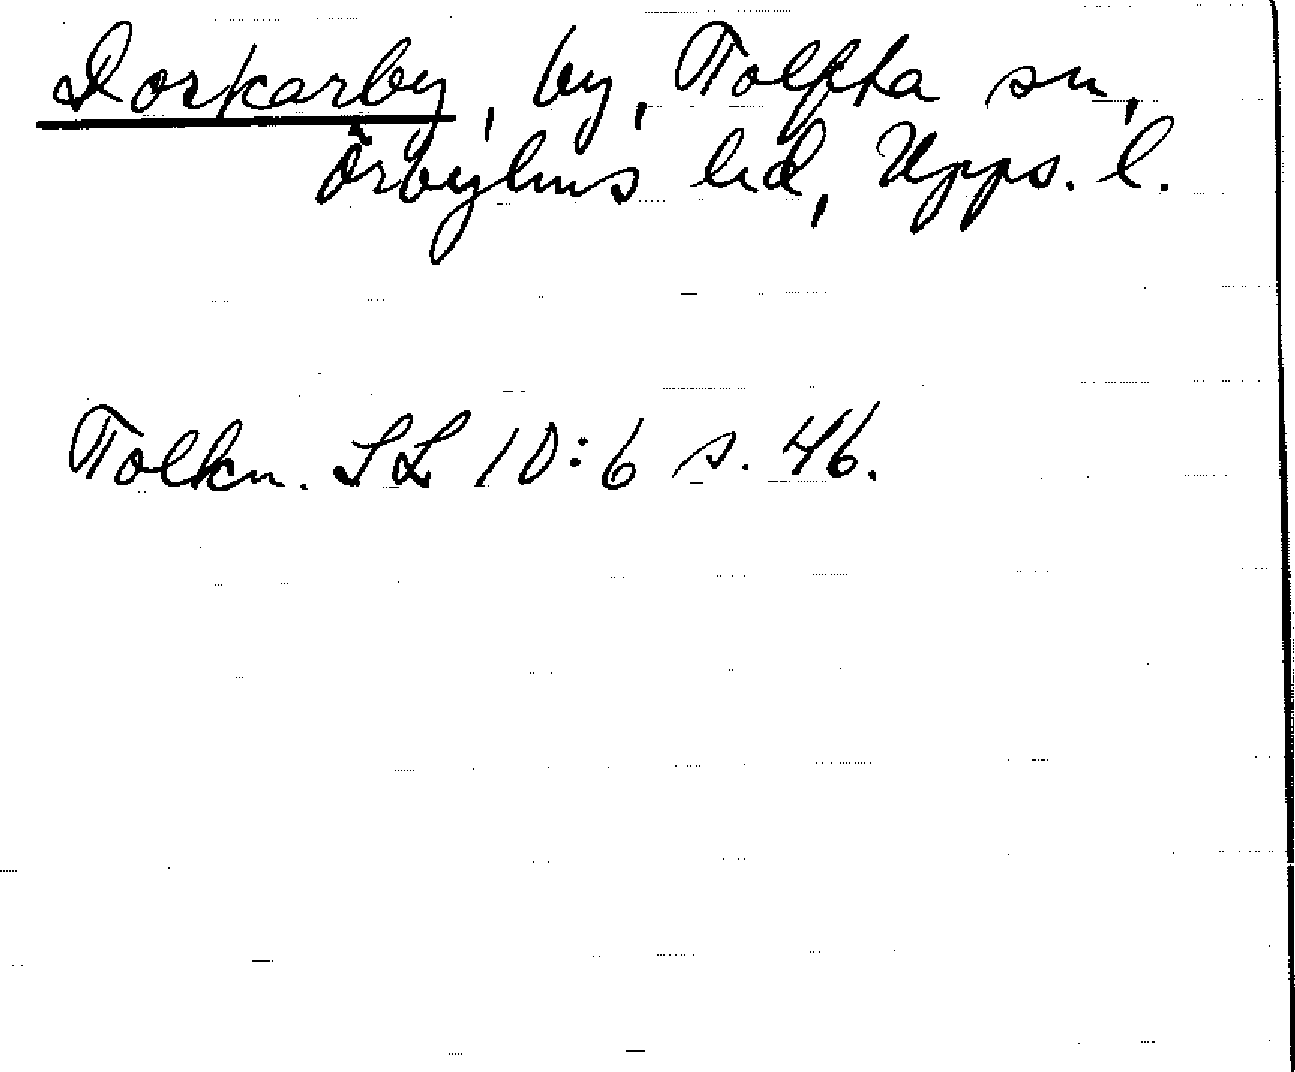 Doskarby, by, Tolfta sn,
Örbyhus hd, Upps. l.
Tolkn. SL 10:6 s. 46.